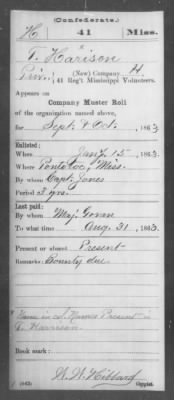 (Confederate.)
H 41 Miss.
T. Harison
Priv., (New) Company H,
41 Reg't Mississippi Volunteers.
Appears on
Company Muster Roll
of the organization named above,
for Sept & Oct., 1863
Enlisted:
When Jan'y 15, 1863
Where Pontotoc, Miss.
By whom Capt. Jones
Period 3 yrs.
Last paid:
By whom Maj. Goran
To what time Aug. 31, 1863
Present or absent Present
Remarks: Bounty due
Name in col. Names Present is
T. Harrison.
Book mark:
(642) W. W. Hibbard
Copyist.